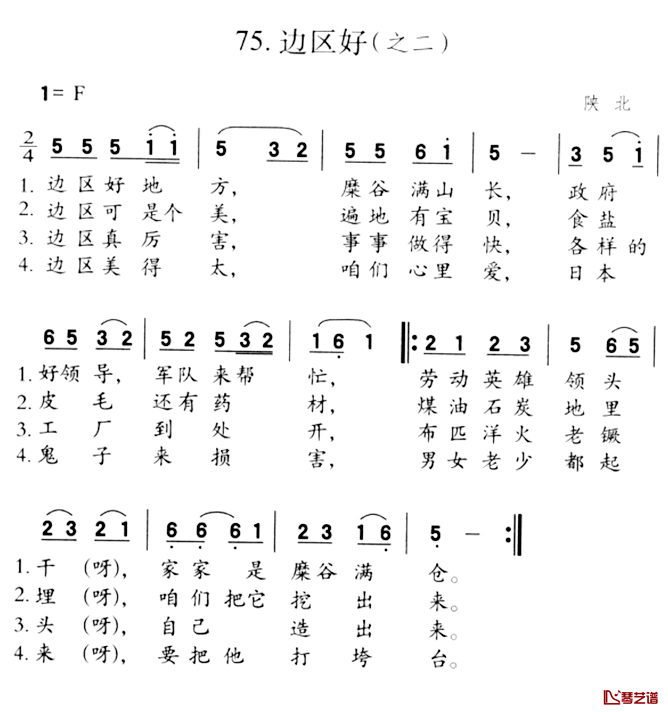 75. 边区好(之二)
1= F
陕 北
2/4 5 5 5 i i | 5 3 2 | 5 5 6 i | 5 – | 3 5 i
1. 边 区 好 地 方, 糜 谷 满 山 长, 政 府
2. 边 区 可 是 个 美, 遍 地 有 宝 贝, 食 盐
3. 边 区 真 厉 害, 事 事 做 得 快, 各 样 的
4. 边 区 美 得 太, 咱 们 心 里 爱, 日 本
6 5 3 2 | 5 2 5 3 2 | 1 6 1 |: 2 1 2 3 | 5 6 5
1. 好 领 导, 军 队 来 帮 忙, 劳 动 英 雄 领 头
2. 皮 毛 还 有 药 材, 煤 油 石 炭 地 里
3. 工 厂 到 处 开, 布 匹 洋 火 老 镢
4. 鬼 子 来 损 害, 男 女 老 少 都 起
2 3 2 1 | 6 6 6 1 | 2 3 1 6 | 5 – :|
1. 干 (呀), 家 家 是 糜 谷 满 仓。
2. 埋 (呀), 咱 们 把 它 挖 出 来。
3. 头 (呀), 自 己 造 出 来。
4. 来 (呀), 要 把 他 打 垮 台。
琴艺谱